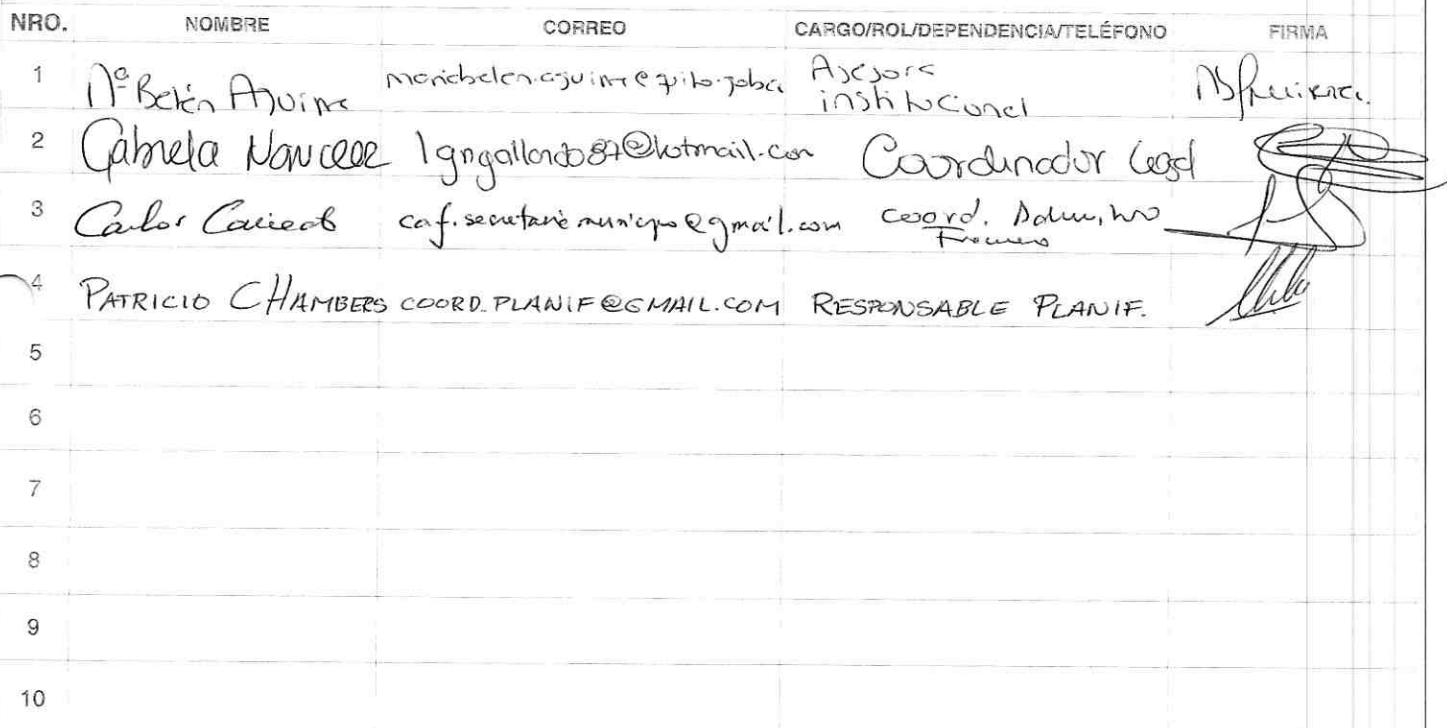 NRO. NOMBRE CORREO CARGO/ROL/DEPENDENCIA/TELÉFONO FIRMA
1 Mª Belén Aguirre mariabelen.aguirre@quito.gob.ec Asesora
institucional
2 Gabriela lgngallardo87@hotmail.com Coordinador Legal
3 Carlos caf.secretaria.municipio@gmail.com Coord.
4 PATRICIO CHAMBERS COORD.PLANIF@GMAIL.COM RESPONSABLE PLANIF.
5
6
7
8
9
10